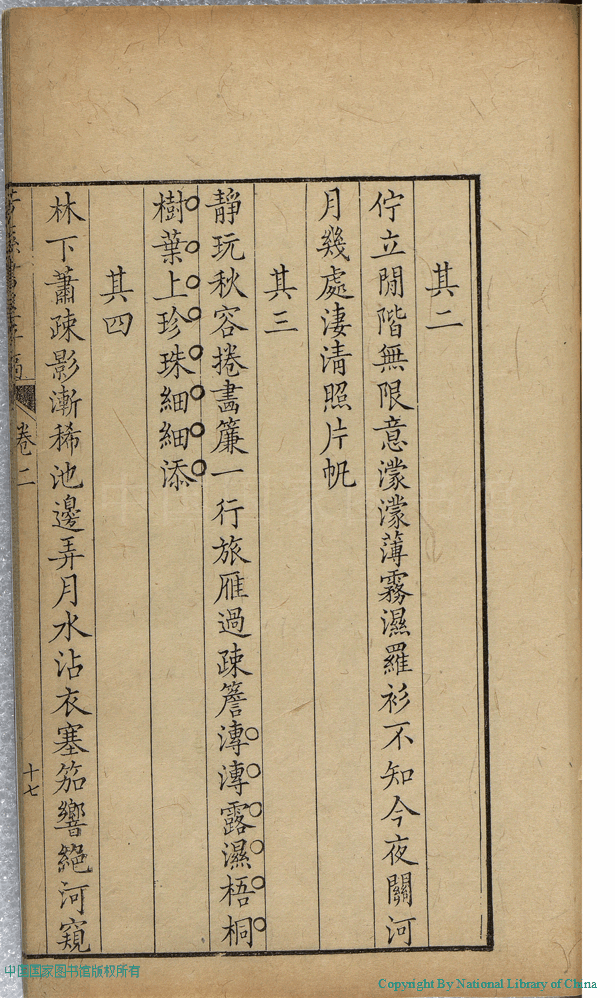 其二
佇立閒階無限意濛濛薄霧濕羅衫不知今夜關河
月幾處淒清照片帆
其三
靜玩秋容捲畵簾一行旅雁過疎簷漙漙露濕梧桐
樹葉上珍珠細細添
其四
林下蕭疎影漸稀池邊弄月水沾衣塞笳響絕河窺
卷二
十七
中国国家图书馆版权所有
Copyright By National Library of China